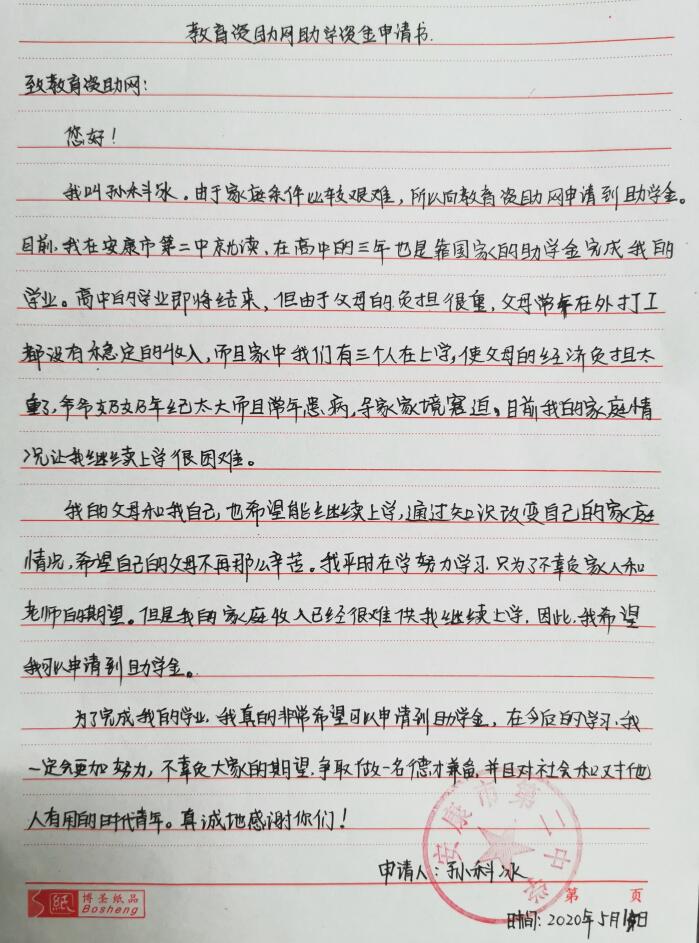 教育资助网助学资金申请书.
致教育资助网:
您好!
我叫孙科冰。由于家庭条件比较艰难,所以向教育资助网申请到助学金。
目前,我在安康市第二中就读,在高中的三年也是靠国家的助学金完成我的
学业。高中的学业即将结束,但由于父母的负担很重,父母常年在外打工
都没有稳定的收入,而且家中我们有三个人在上学,使父母的经济负担太
重了,爷爷奶奶年纪太大而且常年患病,导家家境窘迫。目前我的家庭情
况让我继续上学很困难。
我的父母和我自己,也希望能继续上学,通过知识改变自己的家庭
情况,希望自己的父母不再那么辛苦。我平时在学努力学习.只为了不辜负家人和
老师的期望。但是我的家庭收入已经很难供我继续上学,因此,我希望
我可以申请到助学金。
为了完成我的学业,我真的非常希望可以申请到助学金,在今后的学习,我
一定会更加努力,不辜负大家的期望,争取做一名德才兼备,并且对社会和对他
人有用的时代青年。真诚地感谢你们!
安康市第二中学
申请人:孙科冰
博圣纸品
Bosheng
第 页
时间:2020年5月日